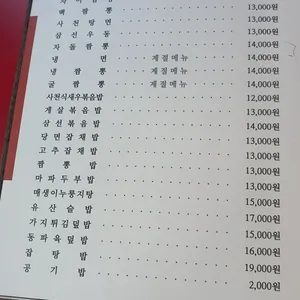 백 짬 뽕 13,000원
사 천 탕 면 13,000원
삼 선 우 동 13,000원
차 돌 짬 뽕 14,000원
냉 면 계절메뉴 14,000원
냉 짬 뽕 계절메뉴 14,000원
굴 짬 뽕 계절메뉴 14,000원
사천식새우볶음밥 12,000원
게 살 볶 음 밥 13,000원
삼 선 볶 음 밥 14,000원
당 면 잡 채 밥 13,000원
고 추 잡 채 밥 13,000원
짬 뽕 밥 13,000원
마 파 두 부 밥 13,000원
매생이누룽지탕 15,000원
유 산 슬 밥 17,000원
가지튀김덮밥 15,000원
동 파 육 덮 밥 16,000원
잡 탕 밥 19,000원
공 기 밥 2,000원